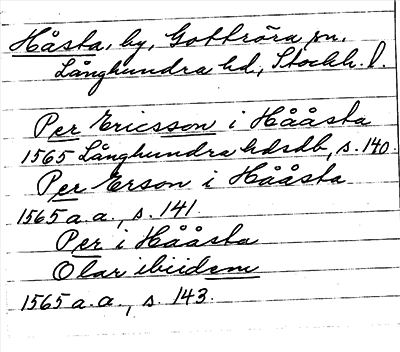 Håsta, by, Gottröra sn.
Långhundra hd, Stockh. l.
Per Ericsson i Hååsta
1565 Långhundra hdsdb, s. 140.
Per Erson i Hååsta
1565 a.a., s. 141.
Per i Hååsta
Olar ibiidem
1565 a.a., s. 143.